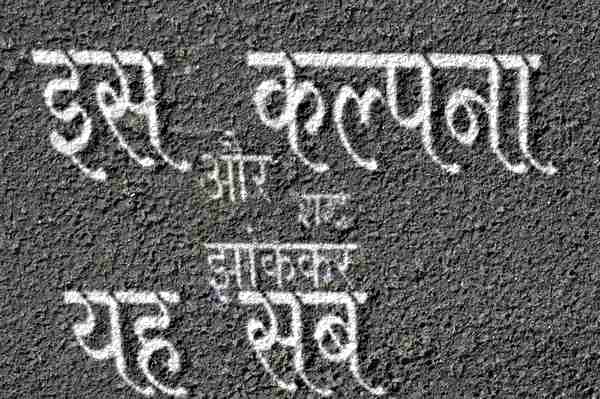 इस कल्पना
और
शब्द
झांककर
यह सब